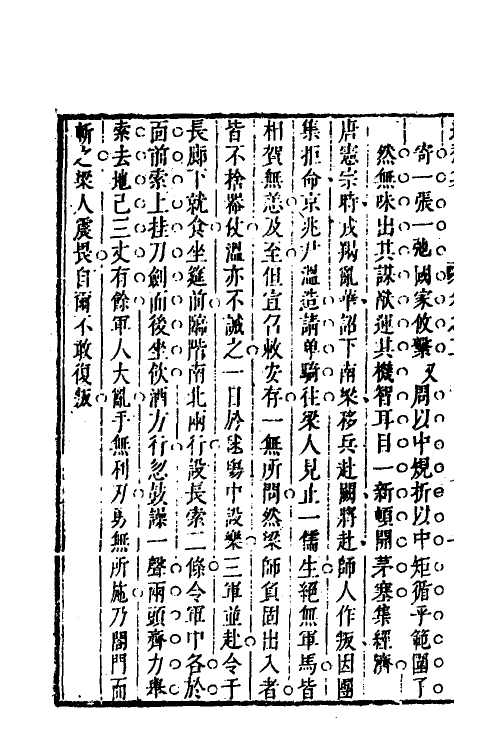 寄一張一弛國家攸繫又周以中規折以中矩循乎範圍了
然無昧出其謀猷運其機智耳目一新頓開茅塞集經濟
唐憲宗時戎羯亂華詔下南梁移兵赴闕將赴師人作叛因團
集拒命京兆尹溫造請单騎往梁人見止一儒生絕無軍馬皆
相賀無恙及至但宣召敕安存一無所問然梁師負固出入者
皆不捨器仗溫亦不誡之一日於毬塲中設樂三軍並赴令于
長廊下就食坐筵前臨階南北兩行設長索二條令軍中各於
面前索上挂刀劍而後坐飲酒方行忽鼓譟一聲兩頭齊力舉
索去地已三丈有餘軍人大亂手無利刃勇無所施乃閤門而
斬之梁人震畏自爾不敢復叛